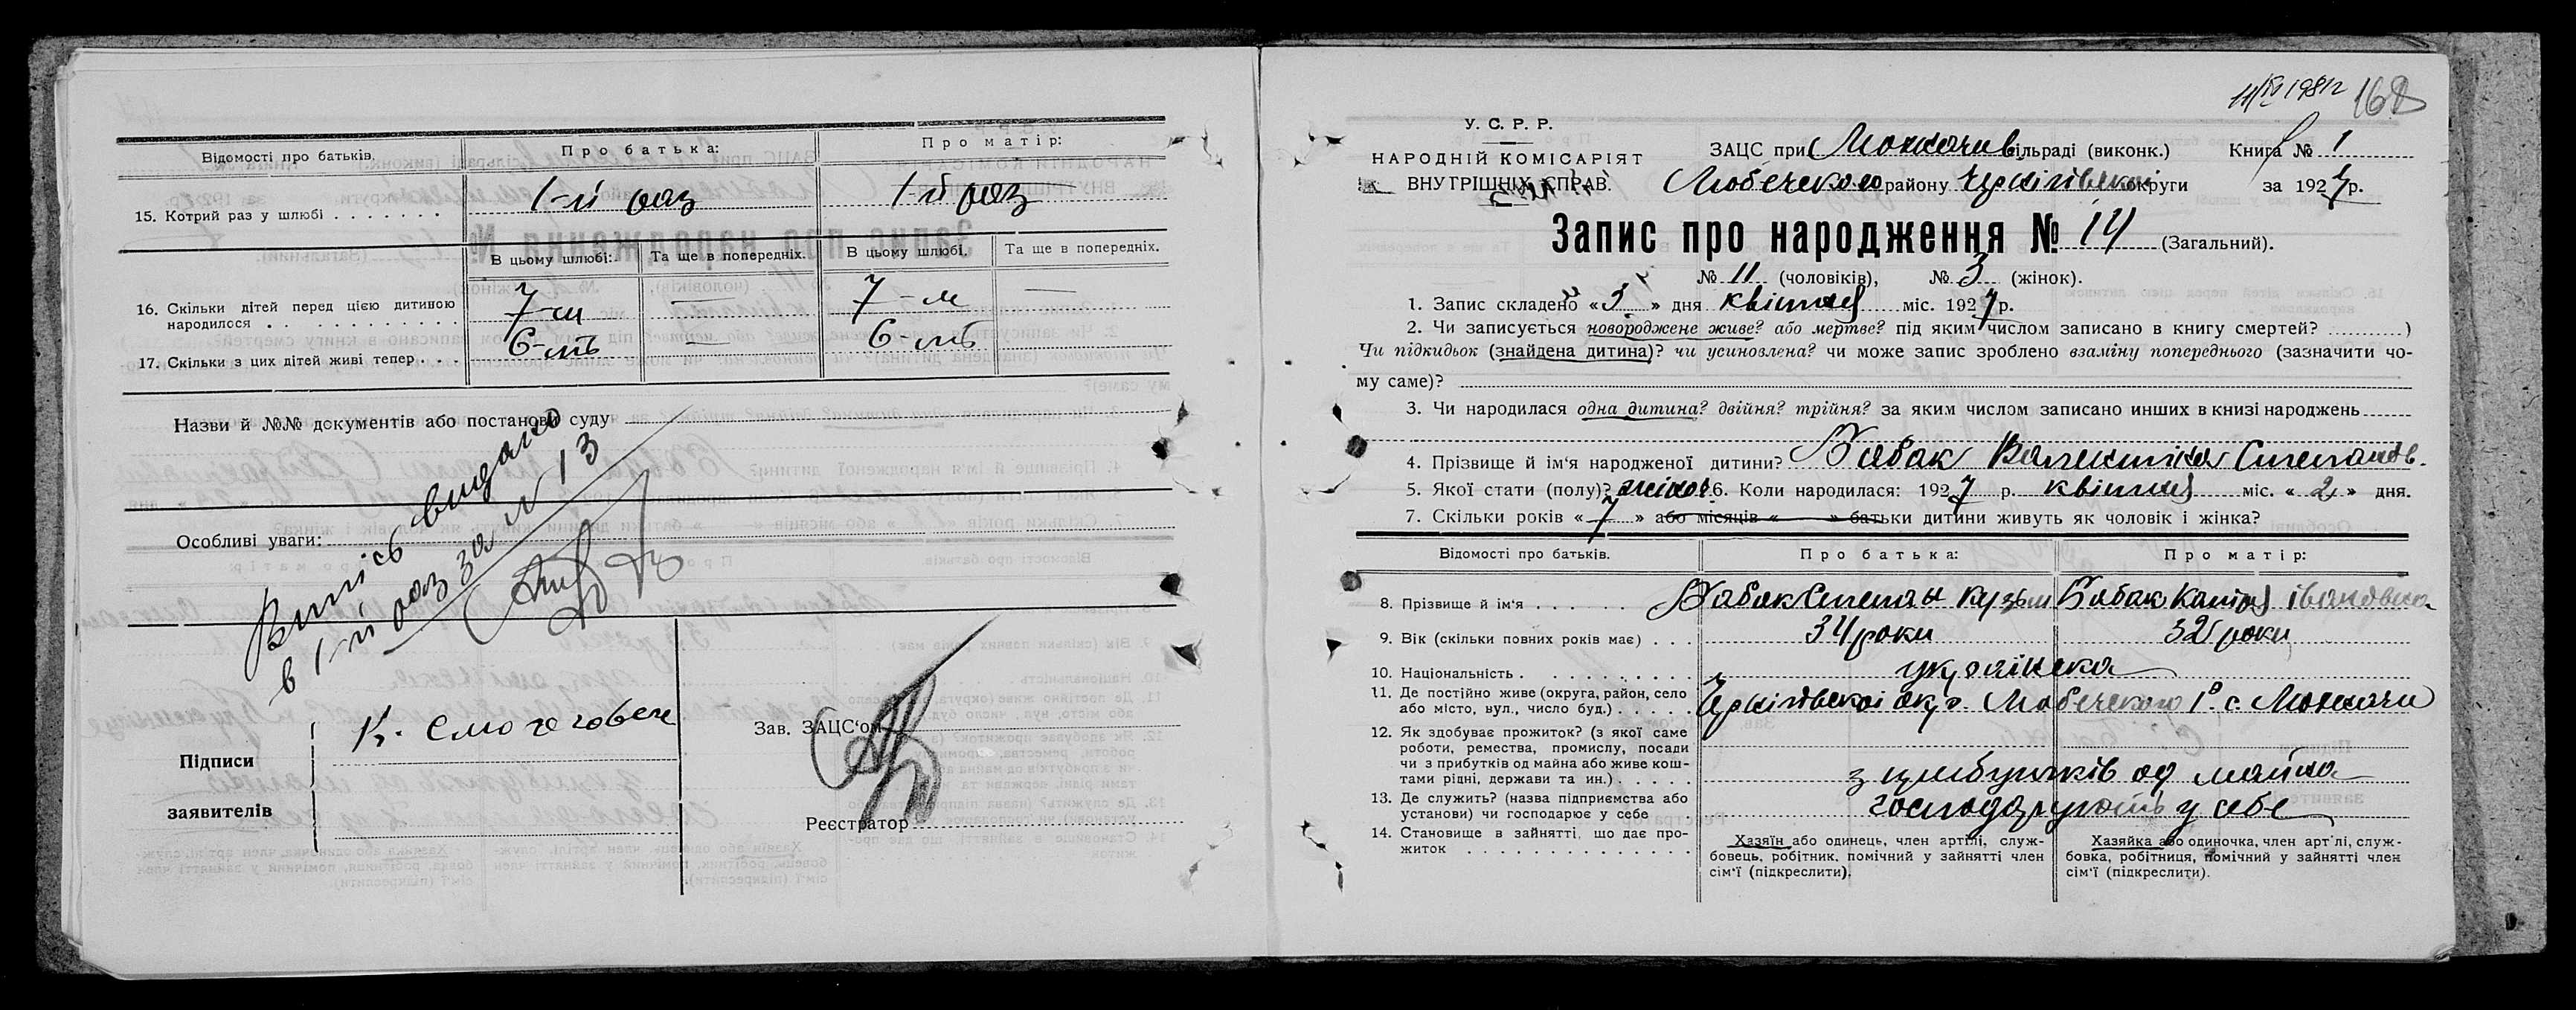 Відомості про батьків.
Про батька:
Про матір:
15. Котрий раз у шлюбі
1-й раз
1-й раз
В цьому шлюбі:
Та ще в попередніх.
В цьому шлюбі.
Та ще в попередніх.
16. Скільки дітей перед цією дитиною
народилося
7-м
—
7-м
—
17. Скільки з цих дітей живі тепер
6-ть
—
6-ть
Назви й №№ документів або постанови суду
Особливі уваги:
Випись видано
в 1-й раз за N 13
Підписи
заявителів
К.
Зав. ЗАЦС'ом
Реєстратор
168
У. С. Р. Р.
НАРОДНІЙ КОМІСАРІЯТ
ВНУТРІШНІХ СПРАВ.
ЗАЦС при Мохначив сільраді (виконк.)
Книга № 1
Любечского району Чернігівської округи
за 1927 р.
Запис про народження № 14 (Загальний).
№ 11 (чоловіків), № 3 (жінок).
1. Запис складено « 3 » дня квітня міс. 1927 р.
2. Чи записується новороджене живе? або мертве? під яким числом записано в книгу смертей? )
Чи підкидьок (знайдена дитина)? чи усиновлена? чи може запис зроблено взаміну попереднього (зазначити чо-
му саме)?
3. Чи народилася одна дитина? двійня? трійня? за яким числом записано инших в книзі народжень
4. Прізвище й ім'я народженої дитини? Бабак Валентина Степанов.
5. Якої стати (полу)? жіноч. 6. Коли народилася: 1927 р. квітня міс. « 2 » дня.
7. Скільки років « 7 » або місяців « » батьки дитини живуть як чоловік і жінка?
Відомості про батьків.
Про батька:
Про матір:
8. Прізвище й ім'я
Бабак Степан Кузьм
Бабак Катря Івановна
9. Вік (скільки повних років має)
34 роки
32 роки
10. Національність
українська
11. Де постійно живе (округа, район, село
або місто, вул., число буд.)
Чернігівської окр. Любечского Р. с. Мохначи
12. Як здобуває прожиток? (з якої саме
роботи, ремества, промислу, посади
чи з прибутків од майна або живе кош-
тами рідні, держави та ин.)
з прибутків од майна
13. Де служить? (назва підприємства або
установи) чи господарює у себе
господарують у себе
14. Становище в зайнятті, що дає про-
житок
Хазяїн або одинець, член артілі, служ-
бовець, робітник, помічний у зайнятті член
сім'ї (підкреслити).
Хазяйка або одиночка, член арт'лі, служ-
бовка, робітниця, помічний у зайнятті член
сім'ї (підкреслити).